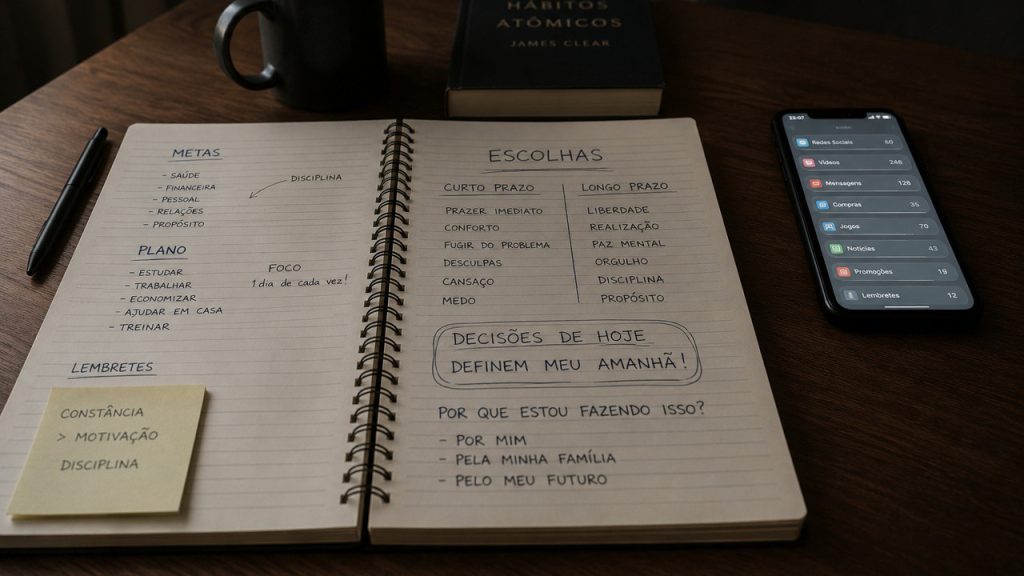 HÁBITOS
ATÔMICOS
JAMES CLEAR
METAS
- SAÚDE
- FINANCEIRA
- PESSOAL
- RELAÇÕES
- PROPÓSITO
DISCIPLINA
PLANO
- ESTUDAR
- TRABALHAR
- ECONOMIZAR
- AJUDAR EM CASA
- TREINAR
FOCO
1 dia de cada vez!
LEMBRETES
CONSTÂNCIA
> MOTIVAÇÃO
DISCIPLINA
ESCOLHAS
CURTO PRAZO
PRAZER IMEDIATO
CONFORTO
FUGIR DO PROBLEMA
DESCULPAS
CANSAÇO
MEDO
LONGO PRAZO
LIBERDADE
REALIZAÇÃO
PAZ MENTAL
ORGULHO
DISCIPLINA
PROPÓSITO
DECISÕES DE HOJE
DEFINEM MEU AMANHÃ!
POR QUE ESTOU FAZENDO ISSO?
- POR MIM
- PELA MINHA FAMÍLIA
- PELO MEU FUTURO
Redes Sociais 60
Vídeos 246
Mensagens 128
Compras 35
Jogos 70
Notícias 43
Promoções 19
Lembretes 12